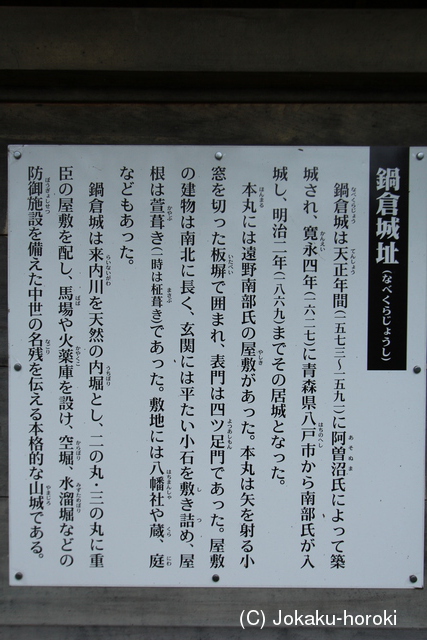 鍋倉城址(なべくらじょうし)
鍋倉城は天正年間(一五七三～一五九二)に阿曽沼氏によって築
城され、寛永四年(一六二七)に青森県八戸市から南部氏が入
城し、明治二年(一八六九)までその居城となった。
本丸には遠野南部氏の屋敷があった。本丸は矢を射る小
窓を切った板塀で囲まれ、表門は四ツ足門であった。屋敷
の建物は南北に長く、玄関には平たい小石を敷き詰め、屋
根は萱葺き(一時は柾葺き)であった。敷地には八幡社や蔵、庭
などもあった。
鍋倉城は来内川を天然の内堀とし、二の丸・三の丸に重
臣の屋敷を配し、馬場や火薬庫を設け、空堀、水溜堀などの
防御施設を備えた中世の名残を伝える本格的な山城である。
(C) Jokaku-horoki